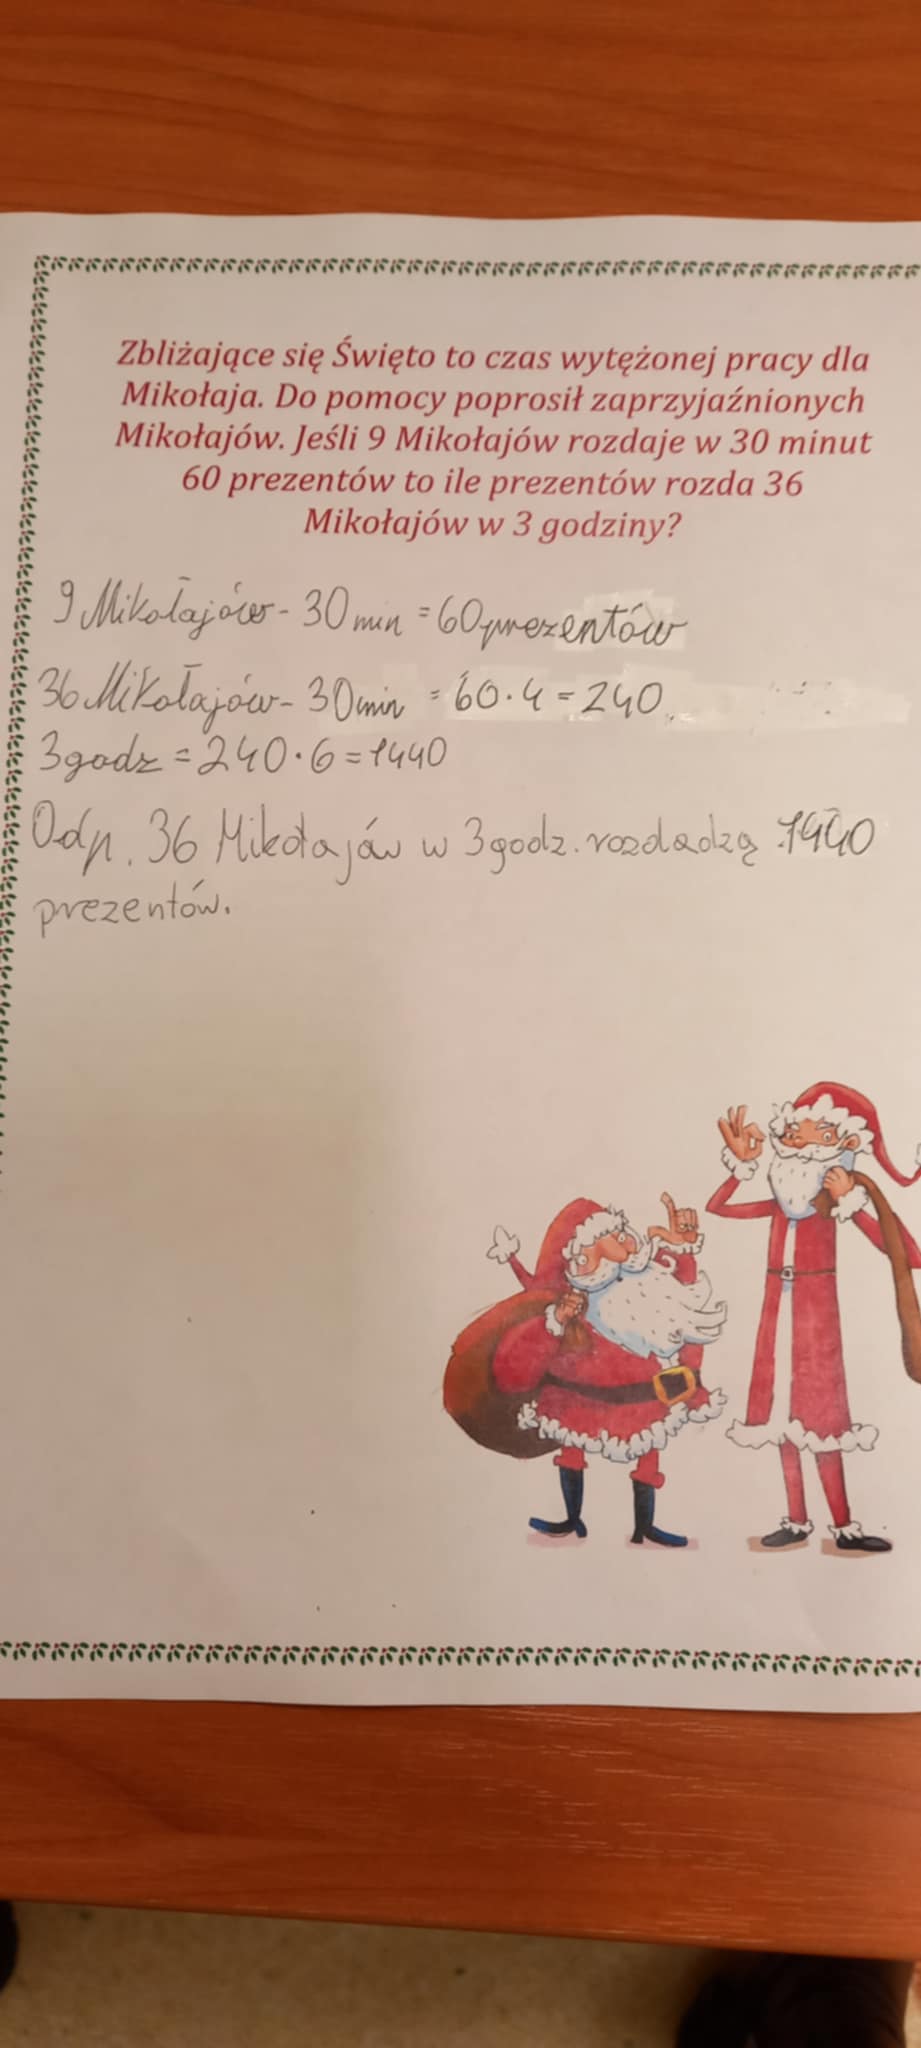 Zbliżające się Święto to czas wytężonej pracy dla
Mikołaja. Do pomocy poprosił zaprzyjaźnionych
Mikołajów. Jeśli 9 Mikołajów rozdaje w 30 minut
60 prezentów to ile prezentów rozda 36
Mikołajów w 3 godziny?
9 Mikołajów - 30 min = 60 prezentów
36 Mikołajów - 30 min = 60 · 4 = 240
3 godz = 240 · 6 = 1440
Odp. 36 Mikołajów w 3 godz. rozdadzą 1440
prezentów.